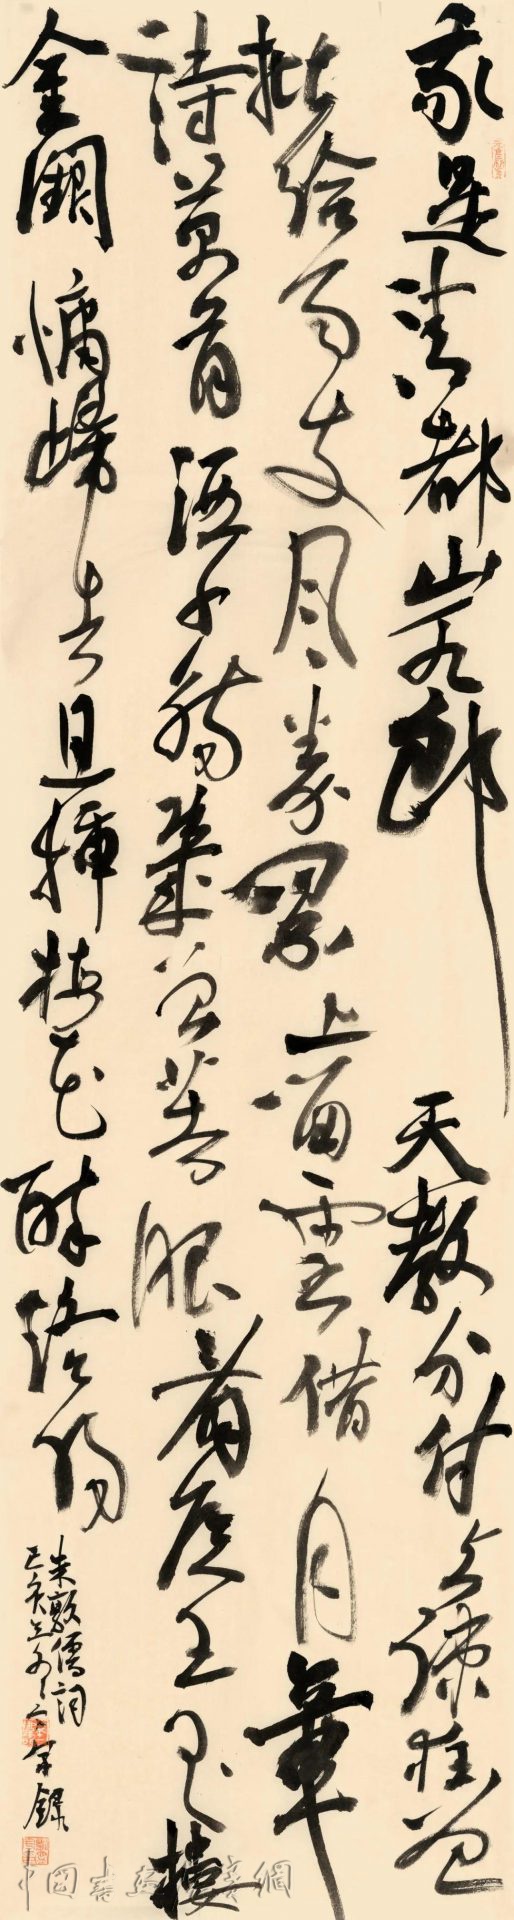 我是清都山水郎天教分付與疎狂曾
批給雨支風券累上留雲借月章
詩萬首酒千觴幾曾著眼看侯王玉樓
金闕慵歸去且插梅花醉洛陽
朱敦儒詞
己亥
錄